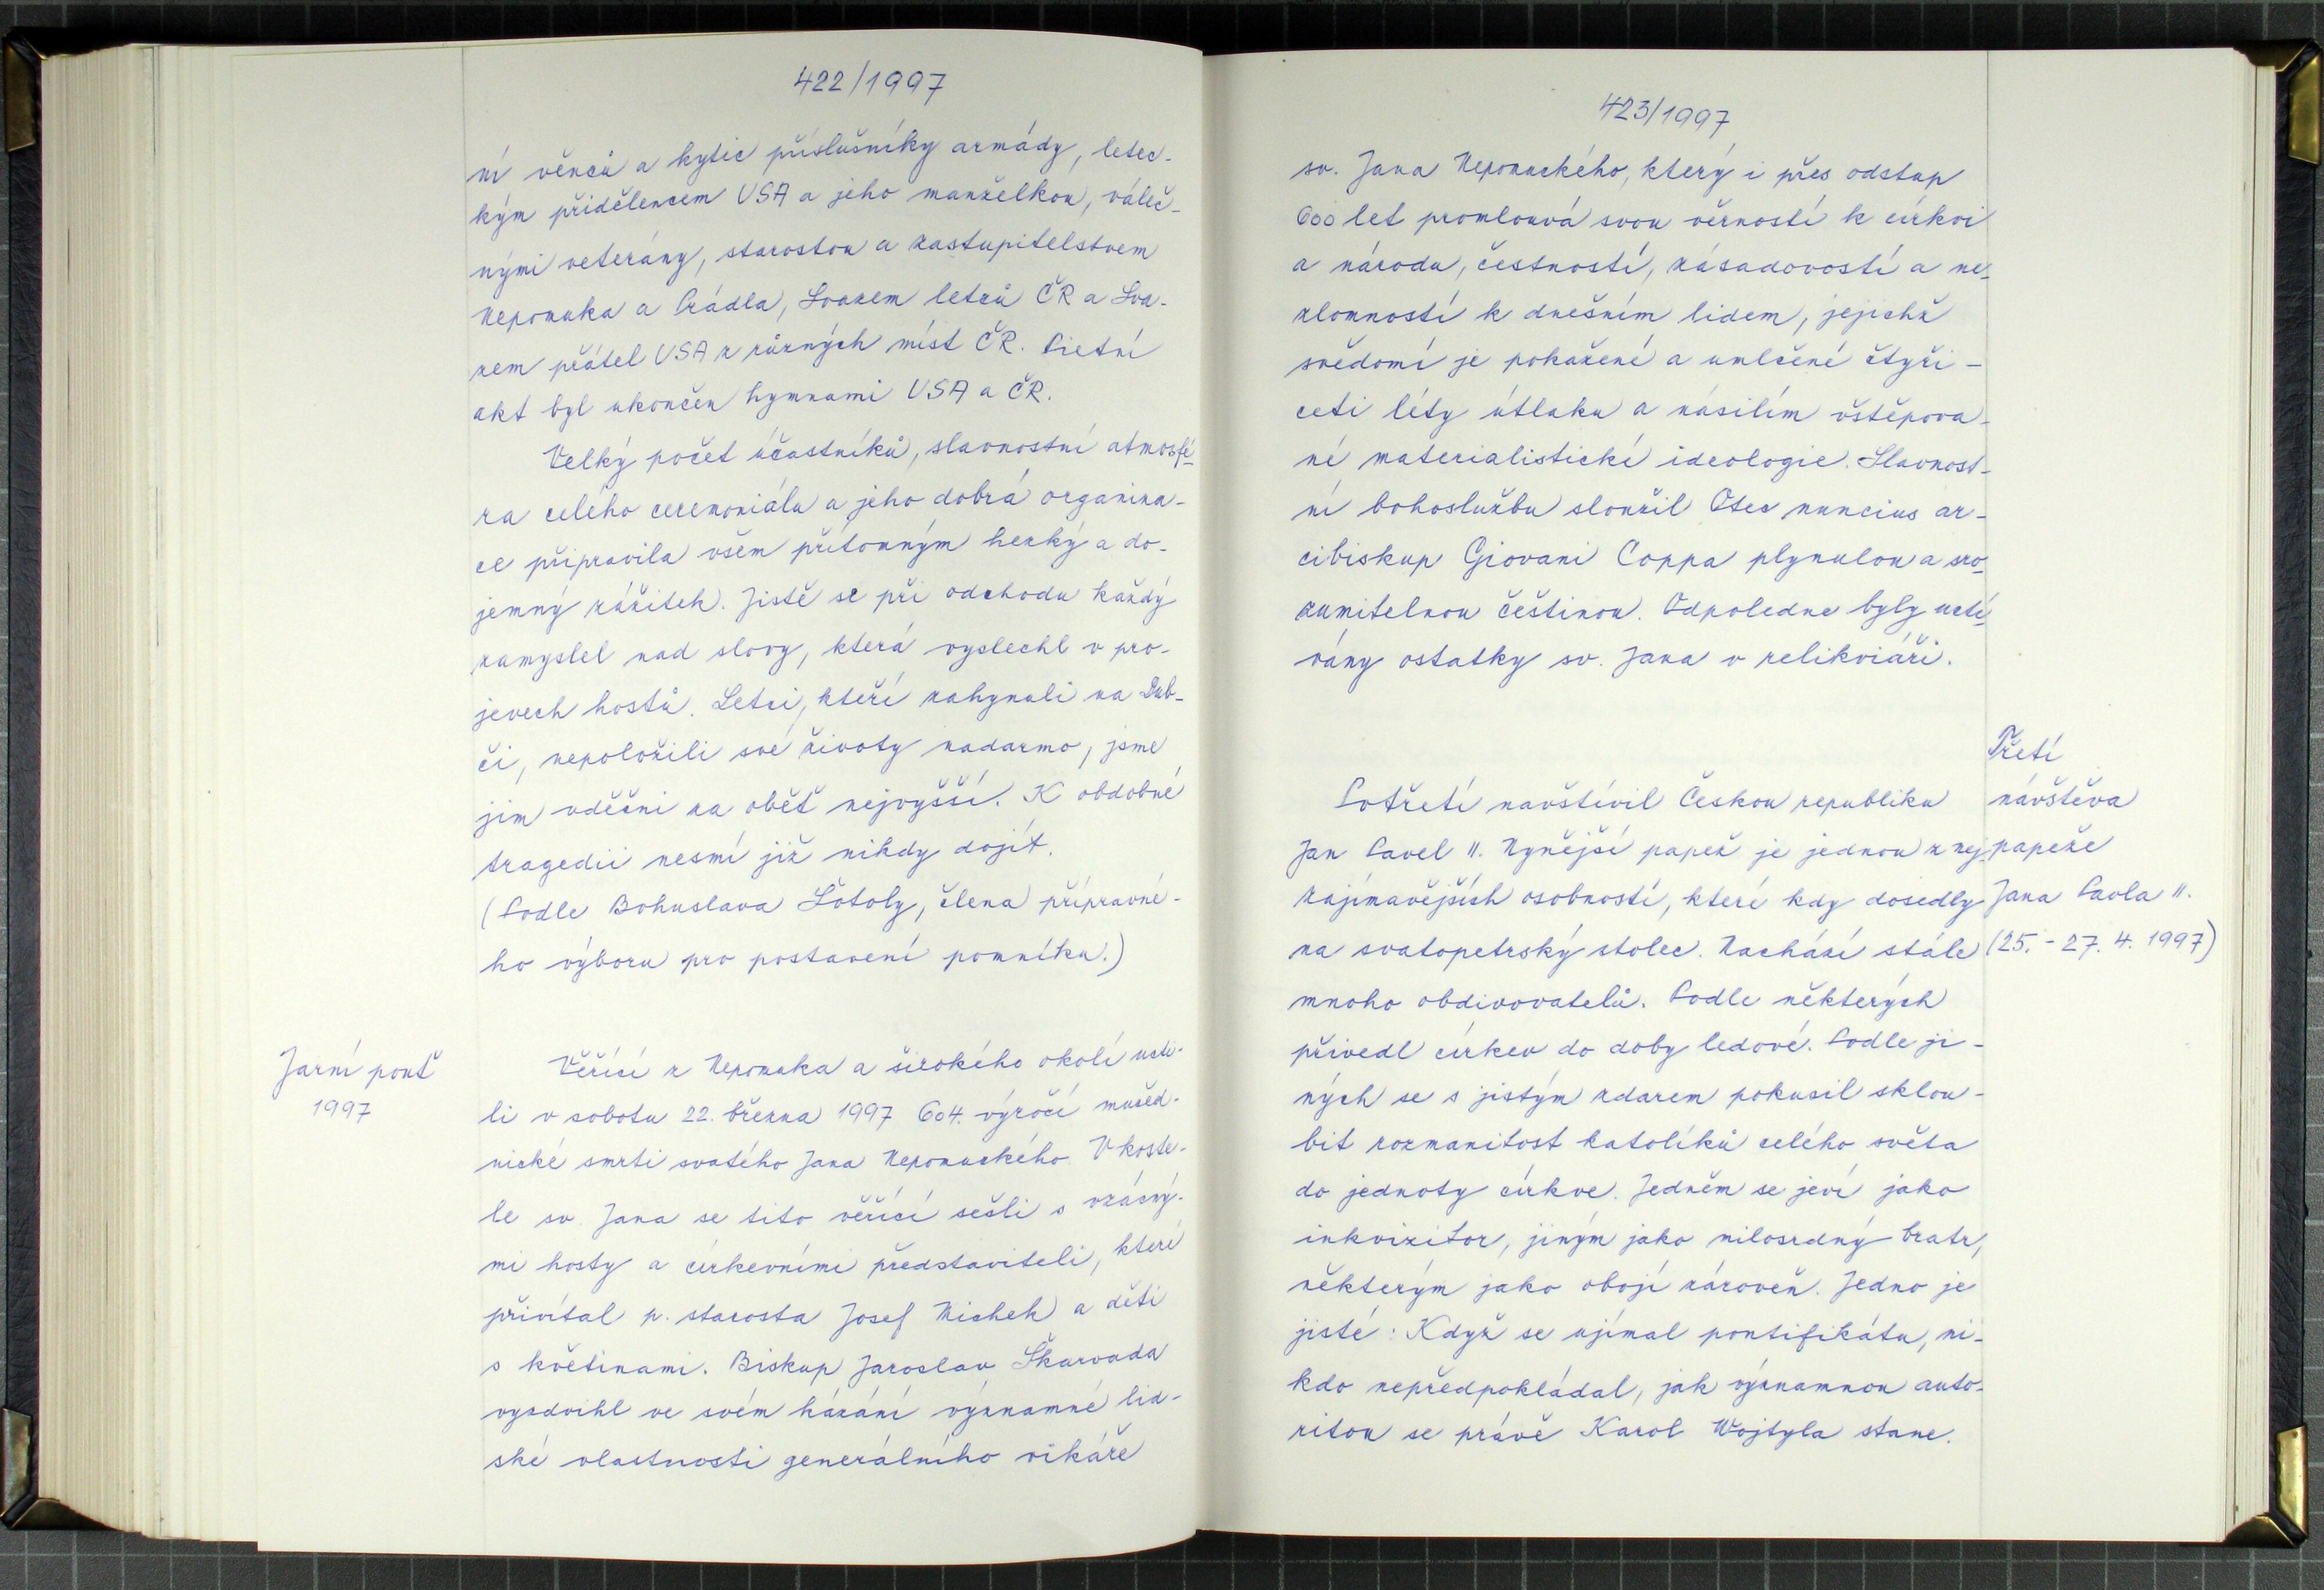 422/1997
ní věnců a kytic příslušníky armády, letec-
kým přidělencem USA a jeho manželkou, váleč-
nými veterány, starostou a zastupitelstvem
Nepomuka a Prádla, Svazem letců ČR a Sva-
zem přátel USA z různých míst ČR. Pietní
akt byl ukončen hymnami USA a ČR.
Velký počet účastníků, slavnostní atmosfé-
ra celého ceremoniálu a jeho dobrá organiza-
ce připravila všem přítomným hezký a do-
jemný zážitek. Jistě se při odchodu každý
zamyslel nad slovy, která vyslechl v pro-
jevech hostů. Letci, kteří zahynuli na Dub-
či, nepoložili své životy nadarmo, jsme
jim vděčni za oběť nejvyšší. K obdobné
tragedii nesmí již nikdy dojít.
(Podle Bohuslava Šotoly, člena přípravné-
ho výboru pro postavení pomníku.)
Jarní pouť
1997
Věřící z Nepomuka a širokého okolí ucti-
li v sobotu 22. března 1997 604. výročí mučed-
nické smrti svatého Jana Nepomuckého. V koste-
le sv. Jana se tito věřící sešli s vzácný-
mi hosty a církevními představiteli, které
přivítal p. starosta Josef Michek a děti
s květinami. Biskup Jaroslav Škarvada
vyzdvihl ve svém kázání významné lid-
ské vlastnosti generálního vikáře
423/1997
sv. Jana Nepomuckého, který i přes odstup
600 let promlouvá svou věrností k církvi
a národu, čestností, zásadovostí a ne-
zlomností k dnešním lidem, jejichž
svědomí je pokažené a umlčené čtyři-
ceti léty útlaku a násilím vštěpova-
né materialistické ideologie. Slavnost-
ní bohoslužbu sloužil Otec nuncius ar-
cibiskup Giovani Coppa plynulou a sro-
zumitelnou češtinou. Odpoledne byly uctí-
vány ostatky sv. Jana v relikviáři.
Třetí
návštěva
papeže
Jana Pavla II.
(25. - 27. 4. 1997)
Potřetí navštívil Českou republiku
Jan Pavel II. Nynější papež je jednou z nej-
zajímavějších osobností, které kdy dosedly
na svatopetrský stolec. Nachází stále
mnoho obdivovatelů. Podle některých
přivedl církev do doby ledové. Podle ji-
ných se s jistým zdarem pokusil sklou-
bit rozmanitost katolíků celého světa
do jednoty církve. Jedněm se jeví jako
inkvizitor, jiným jako milosrdný bratr,
některým jako obojí zároveň. Jedno je
jisté: Když se ujímal pontifikátu, ni-
kdo nepředpokládal, jak významnou auto-
ritou se právě Karol Wojtyla stane.